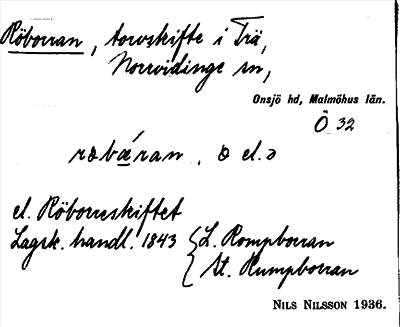 Röborran, torvskifte i Trä,
Norrvidinge sn,
Onsjö hd, Malmöhus län.
Ö 32
rœbǽran, œ el. ə
el. Röborreskiftet
Lagsk. handl. 1843 { L. Rompborran
St. Rumpborran
NILS NILSSON 1936.